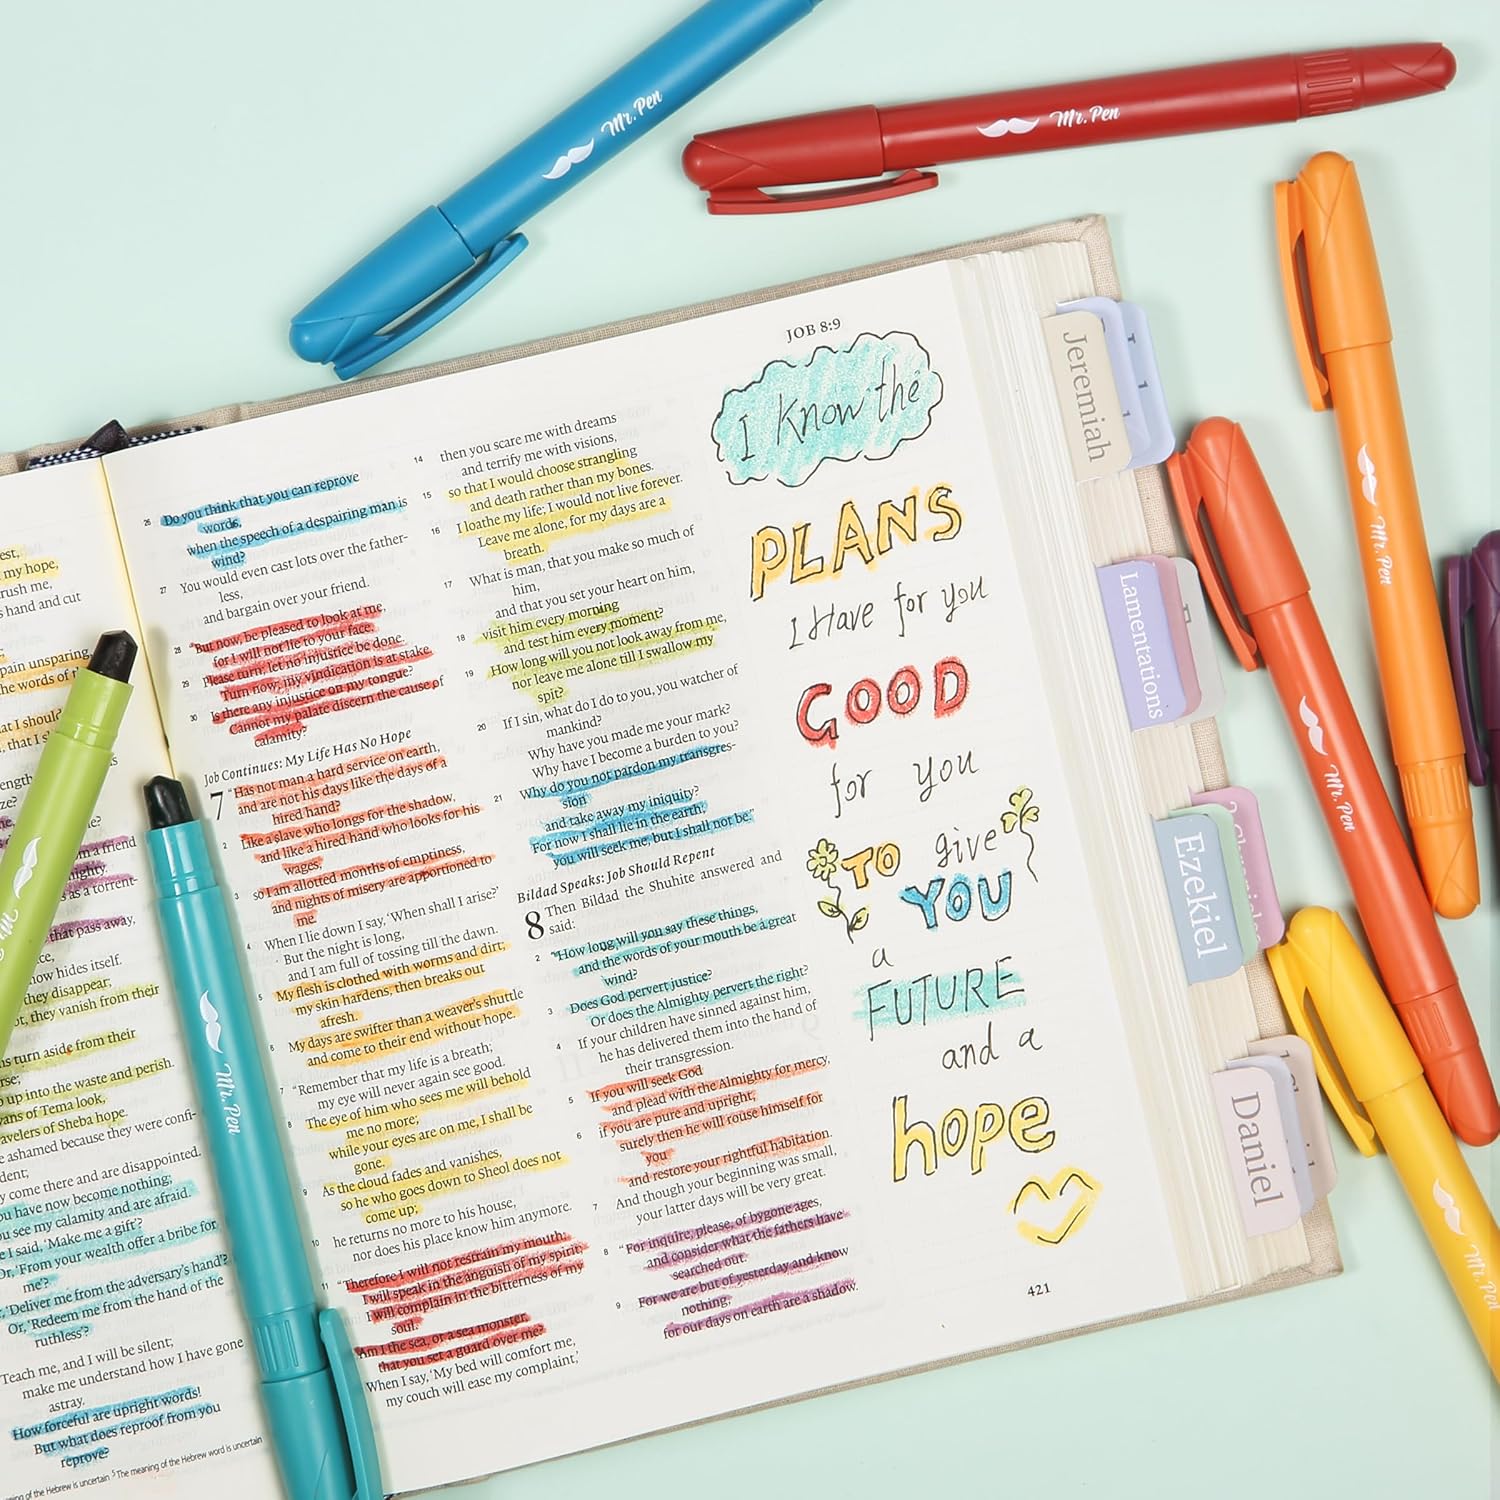 Mr. Pen
Mr. Pen
JOB 8:9
est,
my hope,
rush me,
s hand and cut
pain unsparing,
the words of
at I should
, that I
ength
ze?
me?
m a friend
mighty.
s as a torrent-
that pass away,
ice,
now hides itself.
they disappear,
ot, they vanish from their
ns turn aside from their
rse;
o up into the waste and perish.
vans of Tema look,
avelers of Sheba hope.
e ashamed because they were confi-
dent;
y come there and are disappointed.
ou have now become nothing;
ou see my calamity and are afraid.
e I said, 'Make me a gift'?
Or, 'From your wealth offer a bribe for
me'?
'Deliver me from the adversary's hand'?
Or, 'Redeem me from the hand of the
ruthless'?
Teach me, and I will be silent;
make me understand how I have gone
astray.
How forceful are upright words!
But what does reproof from you
reprove?
ng of the Hebrew is uncertain 5 The meaning of the Hebrew word is uncertain
26 Do you think that you can reprove
words,
when the speech of a despairing man is
wind?
27 You would even cast lots over the father-
less,
and bargain over your friend.
28 "But now, be pleased to look at me,
for I will not lie to your face.
29 Please turn; let no injustice be done.
Turn now; my vindication is at stake.
30 Is there any injustice on my tongue?
Cannot my palate discern the cause of
calamity?
Job Continues: My Life Has No Hope
7 "Has not man a hard service on earth,
and are not his days like the days of a
hired hand?
2 Like a slave who longs for the shadow,
and like a hired hand who looks for his
wages,
3 so I am allotted months of emptiness,
and nights of misery are apportioned to
me.
4 When I lie down I say, 'When shall I arise?'
But the night is long,
and I am full of tossing till the dawn.
5 My flesh is clothed with worms and dirt;
my skin hardens, then breaks out
afresh.
6 My days are swifter than a weaver's shuttle
and come to their end without hope.
7 "Remember that my life is a breath;
my eye will never again see good.
8 The eye of him who sees me will behold
me no more;
while your eyes are on me, I shall be
gone.
9 As the cloud fades and vanishes,
so he who goes down to Sheol does not
come up;
10 he returns no more to his house,
nor does his place know him anymore.
11 "Therefore I will not restrain my mouth;
I will speak in the anguish of my spirit;
I will complain in the bitterness of my
soul.
12 Am I the sea, or a sea monster,
that you set a guard over me?
When I say, 'My bed will comfort me,
my couch will ease my complaint,'
14 then you scare me with dreams
and terrify me with visions,
15 so that I would choose strangling
and death rather than my bones.
16 I loathe my life; I would not live forever.
Leave me alone, for my days are a
breath.
17 What is man, that you make so much of
him,
and that you set your heart on him,
18 visit him every morning
and test him every moment?
19 How long will you not look away from me,
nor leave me alone till I swallow my
spit?
20 If I sin, what do I do to you, you watcher of
mankind?
Why have you made me your mark?
Why have I become a burden to you?
21 Why do you not pardon my transgres-
sion
and take away my iniquity?
For now I shall lie in the earth;
you will seek me, but I shall not be."
Bildad Speaks: Job Should Repent
8 Then Bildad the Shuhite answered and
said:
2 "How long will you say these things,
and the words of your mouth be a great
wind?
3 Does God pervert justice?
Or does the Almighty pervert the right?
4 If your children have sinned against him,
he has delivered them into the hand of
their transgression.
5 If you will seek God
and plead with the Almighty for mercy,
6 if you are pure and upright,
surely then he will rouse himself for
you
and restore your rightful habitation.
7 And though your beginning was small,
your latter days will be very great.
8 "For inquire, please, of bygone ages,
and consider what the fathers have
searched out.
9 For we are but of yesterday and know
nothing,
for our days on earth are a shadow.
I Know the
PLANS
I Have for you
GOOD
for you
TO give
YOU
a
FUTURE
and a
hope
421
Jeremiah
Lamentations
Ezekiel
Daniel
Mr. Pen
Mr. Pen
Mr. Pen
Mr. Pen
Mr. Pen